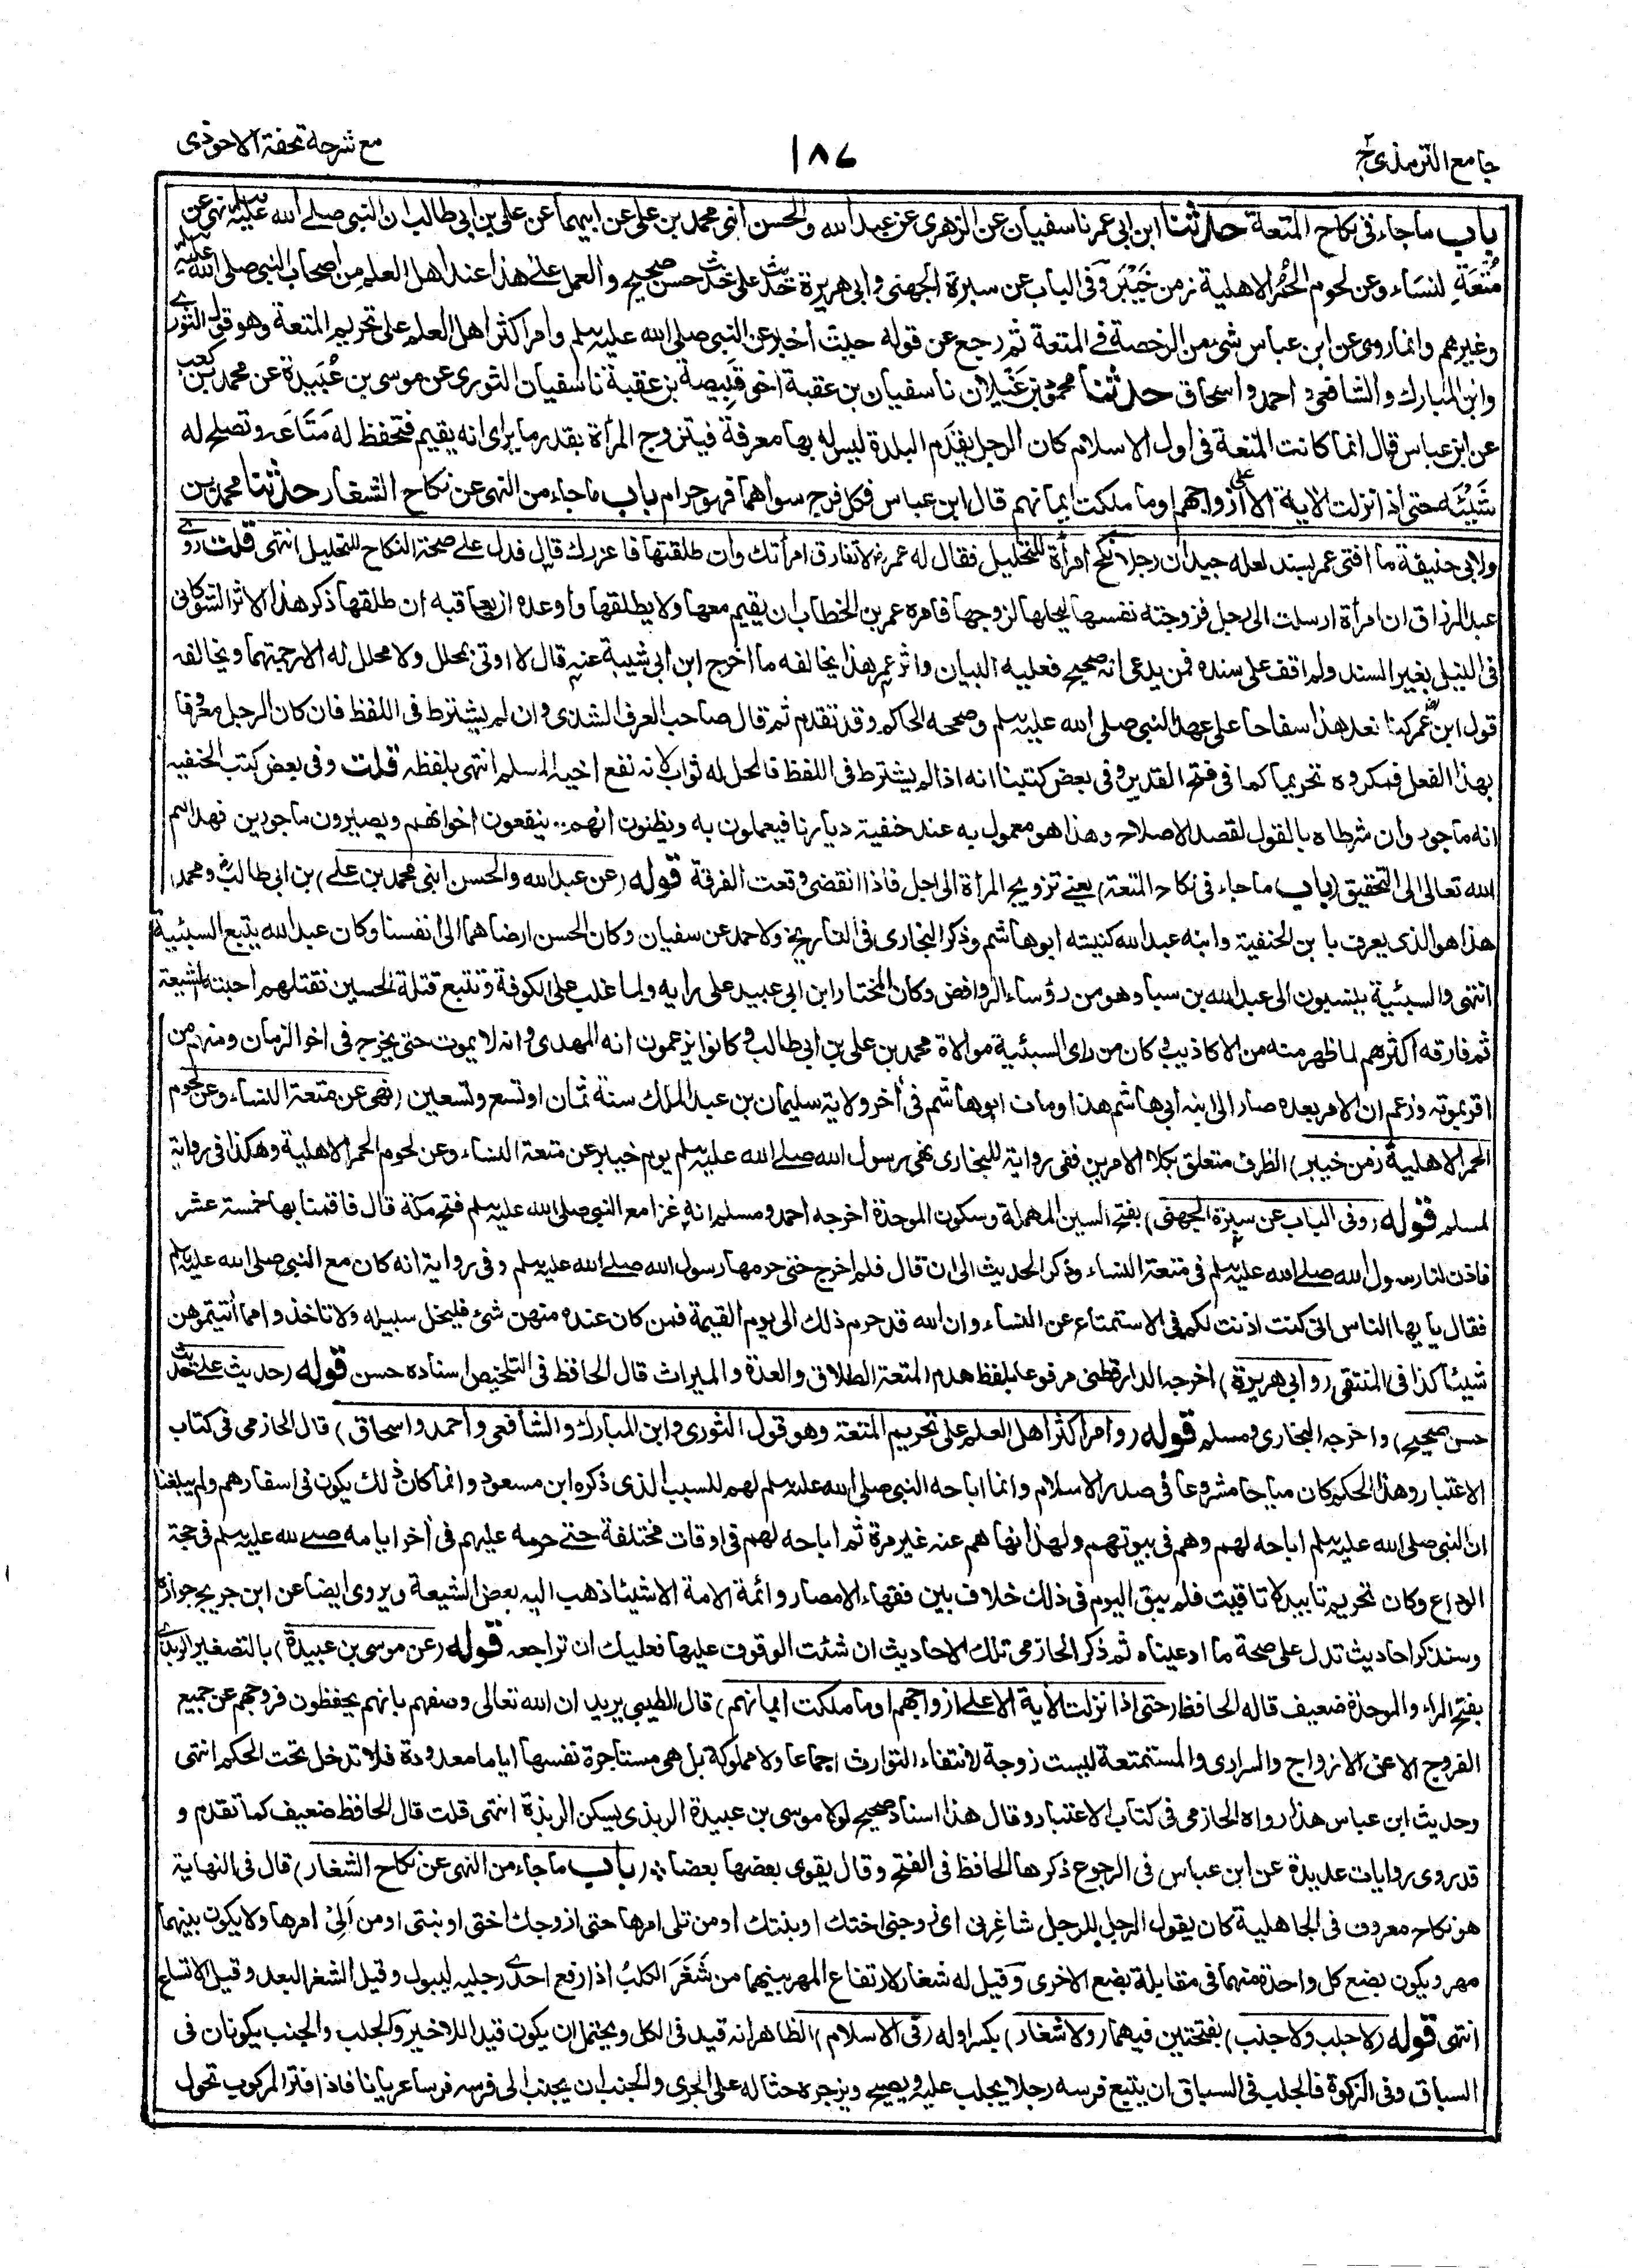 جامع الترمذی ج۲
۱۸۶
مع شرحه تحفة الاحوذی
باب ماجاء فی نکاح المتعة حدثنا ابن ابی عمر نا سفیان عن الزهری عن عبد الله والحسن ابنی محمد بن علی عن ابیهما عن علی بن ابی طالب ان النبی صلے الله علیه وسلم نهی عن
مُتْعَةِ النسَاء وعن لحوم الحُمُر الاهلیة زمن خَیْبَر وفی الباب عن سبرة الجهنی وابی هریرة حدیث علی حدیث حسن صحیح والعمل علے هذا عند اهل العلم من اصحاب النبی صلی الله علیه وسلم
وغیرهم وانما روی عن ابن عباس شیء من الرخصة فے المتعة ثم رجع عن قوله حیث أُخبر عن النبی صلی الله علیه وسلم وامر اکثر اهل العلم علی تحریم المتعة وهو قول الثوری
وابن المبارک والشافعی واحمد واسحاق حدثنا محمود بن غَیلان نا سفیان بن عقبة اخو قَبِیصة بن عقبة نا سفیان الثوری عن موسی بن عُبَیدة عن محمد بن کعب
عن ابن عباس قال انما کانت المتعة فی اول الاسلام کان الرجل یقدَم البلدة لیس له بها معرفة فیتزوج المرأة بقدر ما یرٰی انه یقیم فتحفظ له مَتَاعَه وتصلح له
شَیْئَه حتی اذا نزلت الایة الا علی ازواجهم او ما ملکت ایمانهم قال ابن عباس فکل فرج سواهما فهو حرام باب ماجاء من النهی عن نکاح الشغار حدثنا محمد بن
ولابی حنیفة ما افتی عمر بسند لعله جید ان رجلا نکح امرأة للتحلیل فقال له عمر لا تفارق امرأتک وان طلقتها فاعزرک قال فدل علے صحة النکاح للتحلیل انتهی قلت روی
عبد الرزاق ان امرأة ارسلت الی رجل فزوجته نفسها لیحلها لزوجها فامره عمر بن الخطاب ان یقیم معها ولا یطلقها واوعده ان یعاقبه ان طلقها ذکر هذا الاثر الشوکانی
فی النیل بغیر السند ولم اقف علی سنده فمن یدعی انه صحیح فعلیه البیان واثر عمر هذا یخالفه ما اخرج ابن ابی شیبة عنه قال لا اوتی بمحلل ولا محلل له الا رجمتهما ویخالفه
قول ابن عمر کنا نعد هذا سفاحا علی عهد النبی صلی الله علیه وسلم وصححه الحاکم وقد تقدم ثم قال صاحب العرف الشذی وان لم یشترط فی اللفظ فان کان الرجل معروفا
بهذا الفعل فمکروه تحریما کما فی فتح القدیر وفی بعض کتبنا انه اذا لم یشترط فی اللفظ فالمحل له ثواب لانه نفع اخیه المسلم انتهی بلفظه قلت وفی بعض کتب الحنفیه
انه ماجور وان شرطاه بالقول لقصد الاصلاح وهذا هو معمول به عند حنفیة دیارنا فیعملون به ویظنون انهم ینفعون اخوانهم ویصیرون ماجورین فهداهم
الله تعالی الی التحقیق (باب ماجاء فی نکاح المتعة) یعنے تزویج المرأة الی اجل فاذا انقضی وقعت الفرقة قوله (عن عبد الله والحسن ابنی محمد بن علے) بن ابی طالب ومحمد
هذا هو الذی یعرف بابن الحنفیة وابنه عبد الله کنیته ابو هاشم وذکر البخاری فی التاریخ ولاحمد عن سفیان وکان الحسن ارضاهما الی انفسنا وکان عبد الله یتبع السبئیة
انتهی والسبئیة ینسبون الی عبد الله بن سبا وهو من رؤساء الروافض وکان المختار ابن ابی عبید علی رایه ولما غلب علی الکوفة وتتبع قتلة الحسین فقتلهم احبته الشیعة
ثم فارقه اکثرهم لما ظهر منه من الاکاذیب وکان من رای السبئیة موالاة محمد بن علی بن ابی طالب وکانوا یزعمون انه المهدی وانه لا یموت حتی یخرج فی اخر الزمان ومنهم من
اقر بموته وزعم ان الامر بعده صار الی ابنه ابی هاشم هذا ومات ابو هاشم فی أخر ولایة سلیمان بن عبد الملک سنة ثمان او تسع وتسعین (نهی عن متعة النساء وعن لحوم
الحمر الاهلیة زمن خیبر) الظرف متعلق بکلا الامرین ففی روایة للبخاری نهی رسول الله صلے الله علیه وسلم یوم خیبر عن متعة النساء وعن لحوم الحمر الاهلیة وهکذا فی روایة
لمسلم قوله (وفی الباب عن سبرة الجهنی) بفتح السین المهملة وسکون الموحدة أخرجه احمد ومسلم انه غزا مع النبی صلی الله علیه وسلم فتح مکة قال فاقمنا بها خمسة عشر
فاذن لنا رسول الله صلے الله علیه وسلم فی متعة النساء وذکر الحدیث الی ان قال فلم اخرج حتی حرمها رسول الله صلے الله علیه وسلم وفی روایة انه کان مع النبی صلی الله علیه وسلم
فقال یا یها الناس انی کنت اذنت لکم فی الاستمتاع عن النساء وان الله قد حرم ذلک الی یوم القیمة فمن کان عنده منهن شیئ فلیخل سبیله ولا تاخذوا مما أتیتموهن
شیئا کذا فی المنتقی (وابی هریرة) اخرجه الدارقطنی مرفوعا بلفظ هدم المتعة الطلاق والعدة والمیراث قال الحافظ فی التلخیص اسناده حسن قوله (حدیث علے حدیث
حسن صحیح) واخرجه البخاری ومسلم قوله (وامر اکثر اهل العلم علی تحریم المتعة وهو قول الثوری وابن المبارک والشافعی وأحمد واسحاق) قال الحازمی فی کتاب
الاعتبار وهذا الحکم کان مباحا مشروعا فی صدر الاسلام وانما اباحه النبی صلی الله علیه وسلم لهم للسبب الذی ذکره ابن مسعود وانما کان ذلک یکون فی اسفارهم ولم یبلغنا
ان النبی صلی الله علیه وسلم اباحه لهم وهم فی بیوتهم ولهذا نهاهم عنه غیر مرة ثم اباحه لهم فی اوقات مختلفة حتے حرمه علیهم فی أخر ایامه صلے الله علیه وسلم فی حجة
الوداع وکان تحریم تابید لا تاقیت فلم یبق الیوم فی ذلک خلاف بین فقهاء الامصار وائمة الامة الا شیئا ذهب الیه بعض الشیعة ویروی ایضا عن ابن جریج جوازه
وسنذکر احادیث تدل علی صحة ما ادعیناه ثم ذکر الحازمی تلک الاحادیث ان شئت الوقوف علیها فعلیک ان تراجعه قوله (عن موسی بن عبیدة) بالتصغیر الربذی
بفتح الراء والموحدة ضعیف قاله الحافظ (حتی اذا نزلت الأیة الا علے ازواجهم او ما ملکت ایمانهم) قال الطیبی یرید ان الله تعالی وصفهم بانهم یحفظون فروجهم عن جمیع
الفروج الا عن الازواج والسراری والمستمتعة لیست زوجة لانتفاء التوارث اجماعا ولا مملوکة بل هی مستاجرة نفسها ایاما معدودة فلا تدخل تحت الحکم انتهی
وحدیث ابن عباس هذا رواه الحازمی فی کتاب الاعتبار وقال هذا اسناد صحیح لولا موسی بن عبیدة الربذی یسکن الربذة انتهی قلت قال الحافظ ضعیف کما تقدم و
قد روی روایات عدیدة عن ابن عباس فی الرجوع ذکرها الحافظ فی الفتح وقال یقوی بعضها بعضا (باب ماجاء من النهی عن نکاح الشغار) قال فی النهایة
هو نکاح معروف فی الجاهلیة کان یقول الرجل للرجل شاغِرنی ای زوجنی اختک او بنتک او من تلی امرها حتی ازوجک اختی او بنتی او من اَلِیْ امرها ولا یکون بینهما
مهر ویکون بضع کل واحدة منهما فی مقابلة بضع الاخری وقیل له شغار لارتفاع المهر بینهما من شَغَرَ الکلبُ اذا رفع احدے رجلیه لیبول وقیل الشغر البعد وقیل الاتساع
انتهی قوله (لا جلب ولا جنب) بفتحتین فیهما (ولا شغار) بکسر اوله (فی الاسلام) الظاهر انه قید فی الکل ویحتمل ان یکون قیدا للاخیر والجلب والجنب یکونان فی
السباق وفی الزکوة فالجلب فی السباق ان یتبع فرسه رجلا یجلب علیه ویصیح ویزجره حثا له علی الجری والجنب ان یجنب الی فرسه فرسا عریانا فاذا فتر المرکوب تحول